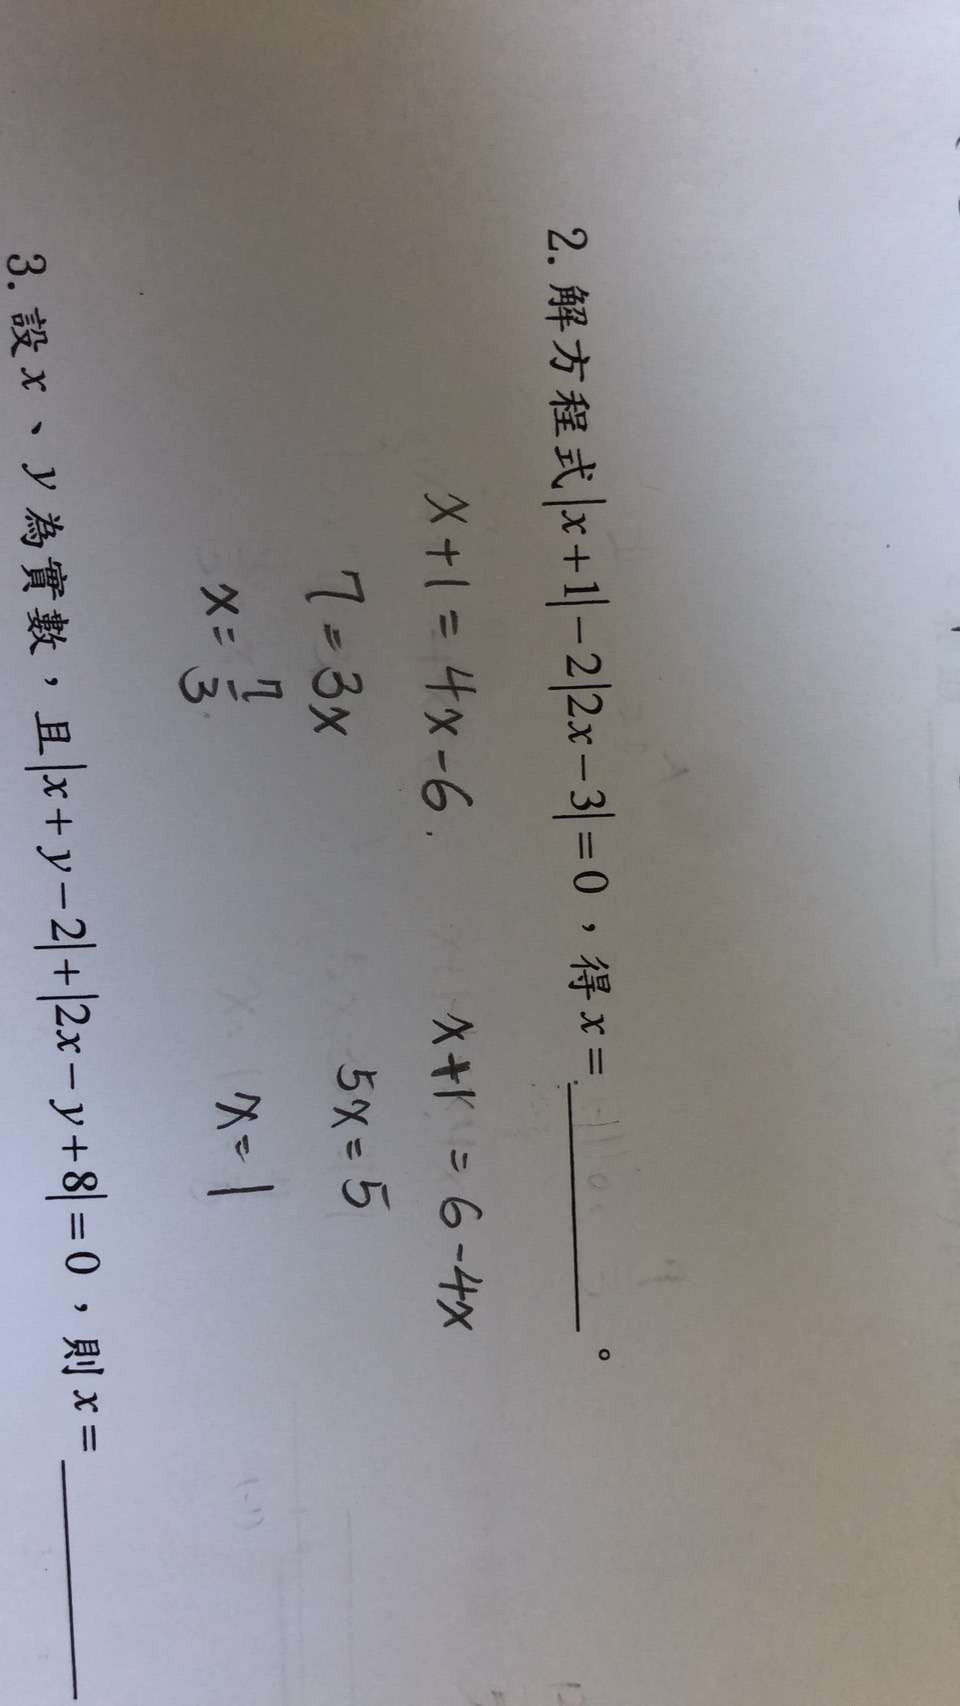 2. 解方程式|x+1|-2|2x-3|=0，得x=______。
x+1=4x-6.  x+1=6-4x
7=3x  5x=5
x=7/3  x=1
3. 設x、y為實數，且|x+y-2|+|2x-y+8|=0，則x=______